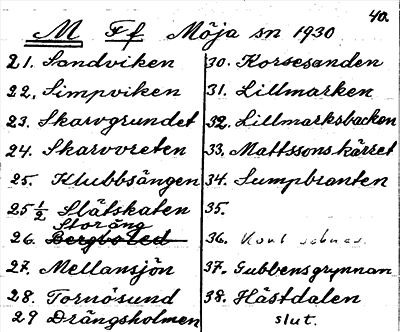 40.
M Ff Möja sn 1930
21. Sandviken
22. Simpviken
23. Skarvgrundet
24. Skarvvreten
25. Klubbsängen
25 1/2 Slätskaten
Storäng
26. Bergboted
27. Mellansjön
28. Tornösund
29 Drängsholmen
30. Korsesanden
31. Lillmarken
32. Lillmarksbacken
33. Mattssonskärret
34. Sumpbranten
35.
36. Kart saknas
37. Gubbensgrynnan
38. Hästdalen
slut.